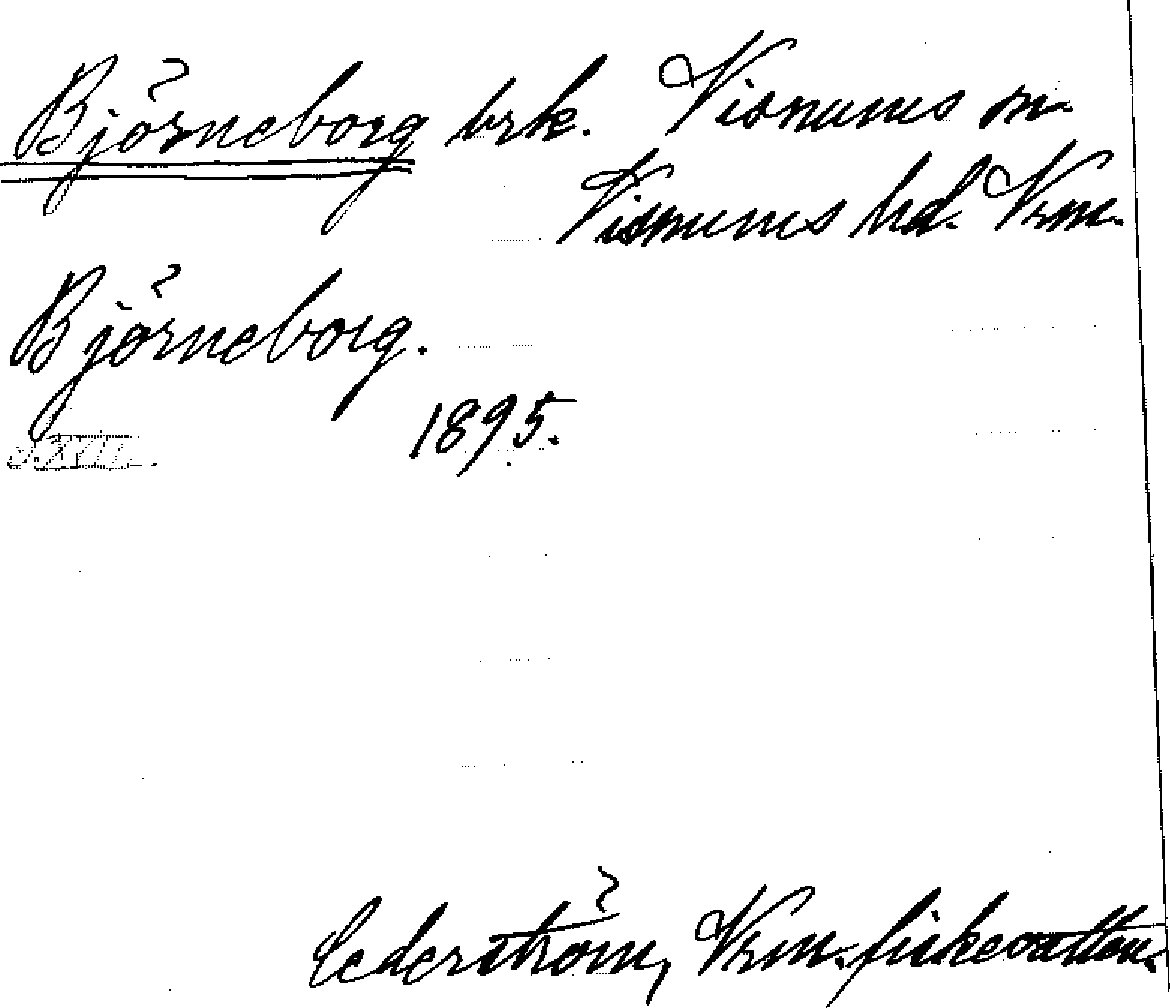 Björneborg brk. Visnums sn.
Visnums hd. Vrm.
Björneborg.
1895.
Cederström, Vrm. fiskevatten.